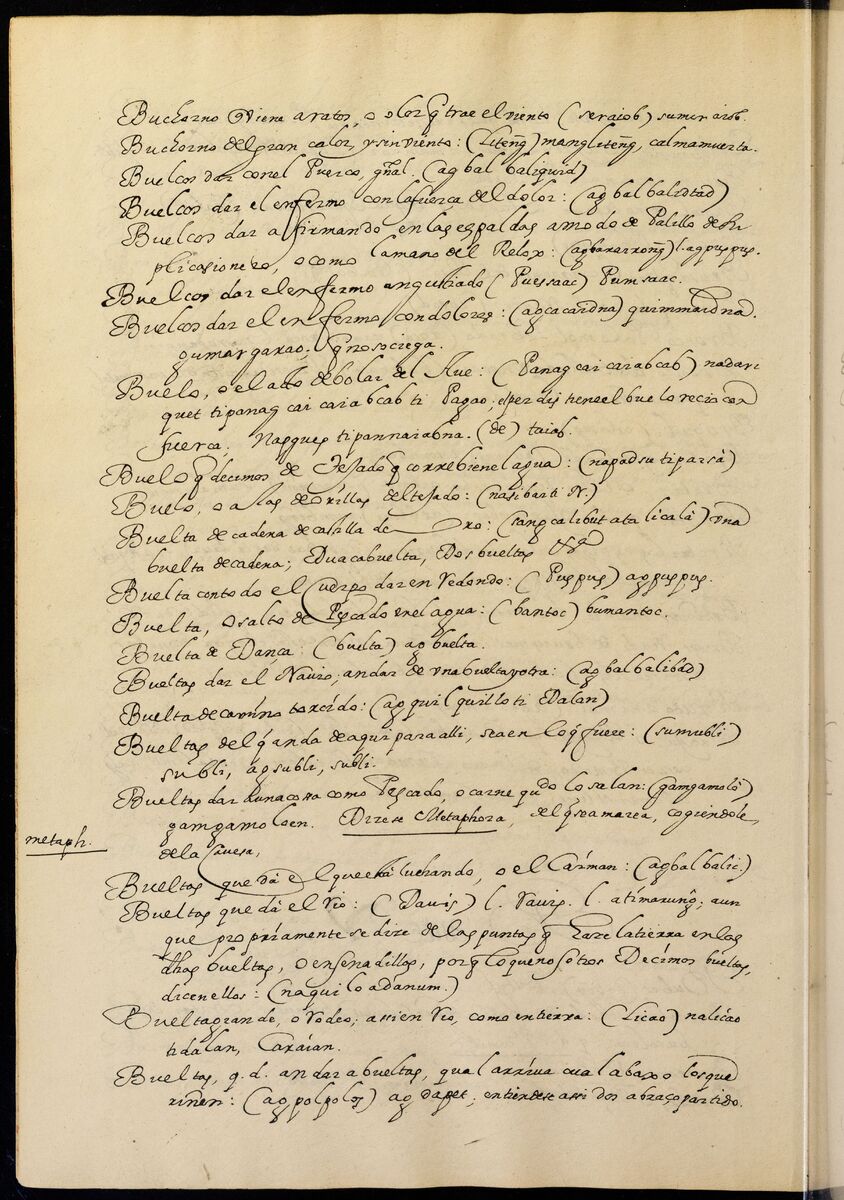 Buchorno q̃ viene a ratos, o olor q̃ trae el viento (seraiob) sumeraiob.
Buchorno del gran calor, y sin viento: (Liteng̃) mangliteng̃, calma muerta.
Buelcos dar con el Puerco, gñal. (ag balbaliquid)
Buelcos dar el enfermo con la fuerça del dolor: (ag balbalidtad)
Buelcos dar afirmando en las espaldas a modo de Palillo de
plicasionero, o como la mano del Relox: (agbararrong̃) l. agpuspus.
Buelcos dar el enfermo angustiado (Puessaac) Pumsaac.
Buelcos dar el enfermo con dolores: (agcacaridna) quimmaridna.
gumargarao; q̃ no sociega.
Buelo, o el acto de bolar del Ave: (Panag cai caiabcab) nadari
quet ti panag cai caiabcab ti Pagao; esperdis tiene el buelo recio con
fuerça. Nasques ti pannaiabna. (de) taiab.
Buelo q̃ decimos de Tejado q̃ corre bien el agua: (napadsu ti parsà)
Buelo, o alas de orillas del tejado: (nasibar ti N.)
Buelta de cadena de castilla de Oro: (sang calibut a talicalà) vna
buelta de cadena; Dua cabuelta, Dos bueltas &ª
Buelta con todo el Cuerpo dar en redondo: (Puspus) agpuspus.
Buelta, o salto de Pescado en el agua: (bantoc) bumantoc.
Buelta de Dança: (buelta) ag buelta.
Bueltas dar el Navio; andar de vna buelta y otra: (ag balbalibad)
Buelta de camino torcido: (ag quilquilo ti Dalan)
Bueltas del q̃ anda de aqui para alli, sea en lo q̃ fuere: (sumubli)
subli, ag subli, subli.
Bueltas dar a una cosa como Pescado, o carne qdo lo salan: (gamgamolò)
gamgamoloen. Dizese Metaphora, del q̃ se amarea, cogiendole
metaph.
de la
Bueltas que dà el que està luchando, o el Carman: (agbalbalic.)
Bueltas que dà el rio: (Dauis) l. rauis. l. a timarung̃; aun
que propriamente se dize de las puntas q̃ haze la tierra en las
dhas bueltas, o ensenadillas, porq̃ lo que nosotros Decimos bueltas,
dicen ellos: (naquilo a danum.)
Buelta grande, o rodeo; assi en rio, como en tierra: (Licao) nalicao
ti dalan, Caraian.
Bueltas, q. d. andar a bueltas, qual arriva cual abaxo los que
riñen: (ag polpolos) ag dapet; entiendese assi dos abraço partido.